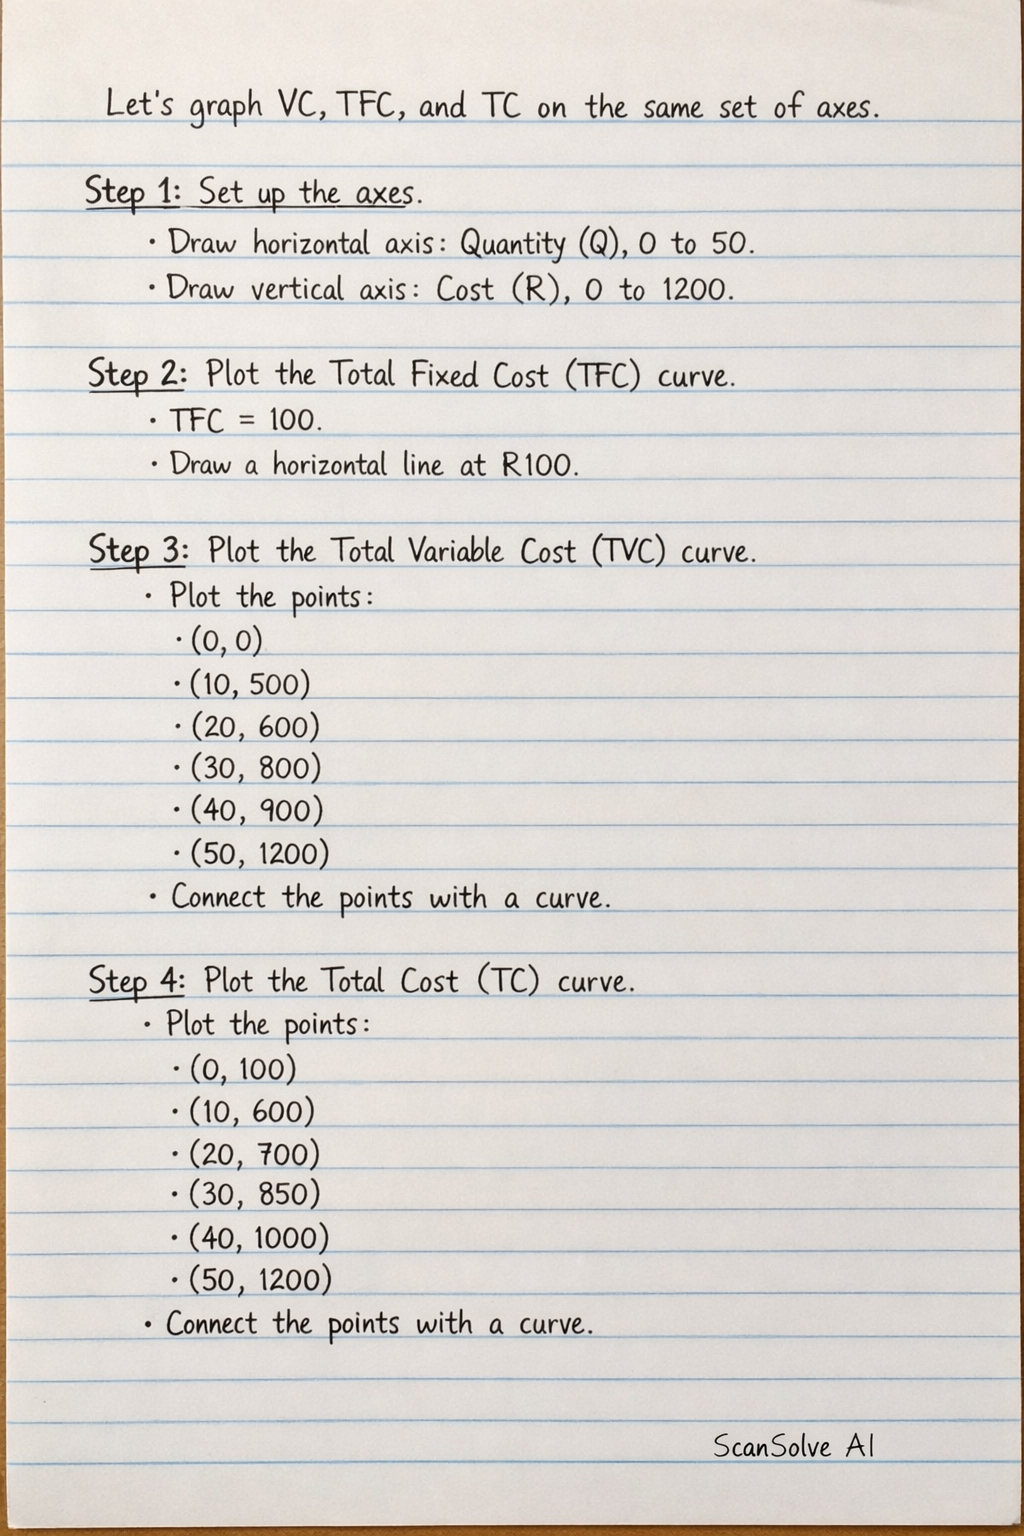 Let's graph VC, TFC, and TC on the same set of axes.
Step 1: Set up the axes.
· Draw horizontal axis: Quantity (Q), 0 to 50.
· Draw vertical axis: Cost (R), 0 to 1200.
Step 2: Plot the Total Fixed Cost (TFC) curve.
· TFC = 100.
· Draw a horizontal line at R100.
Step 3: Plot the Total Variable Cost (TVC) curve.
· Plot the points:
· (0, 0)
· (10, 500)
· (20, 600)
· (30, 800)
· (40, 900)
· (50, 1200)
· Connect the points with a curve.
Step 4: Plot the Total Cost (TC) curve.
· Plot the points:
· (0, 100)
· (10, 600)
· (20, 700)
· (30, 850)
· (40, 1000)
· (50, 1200)
· Connect the points with a curve.
ScanSolve AI